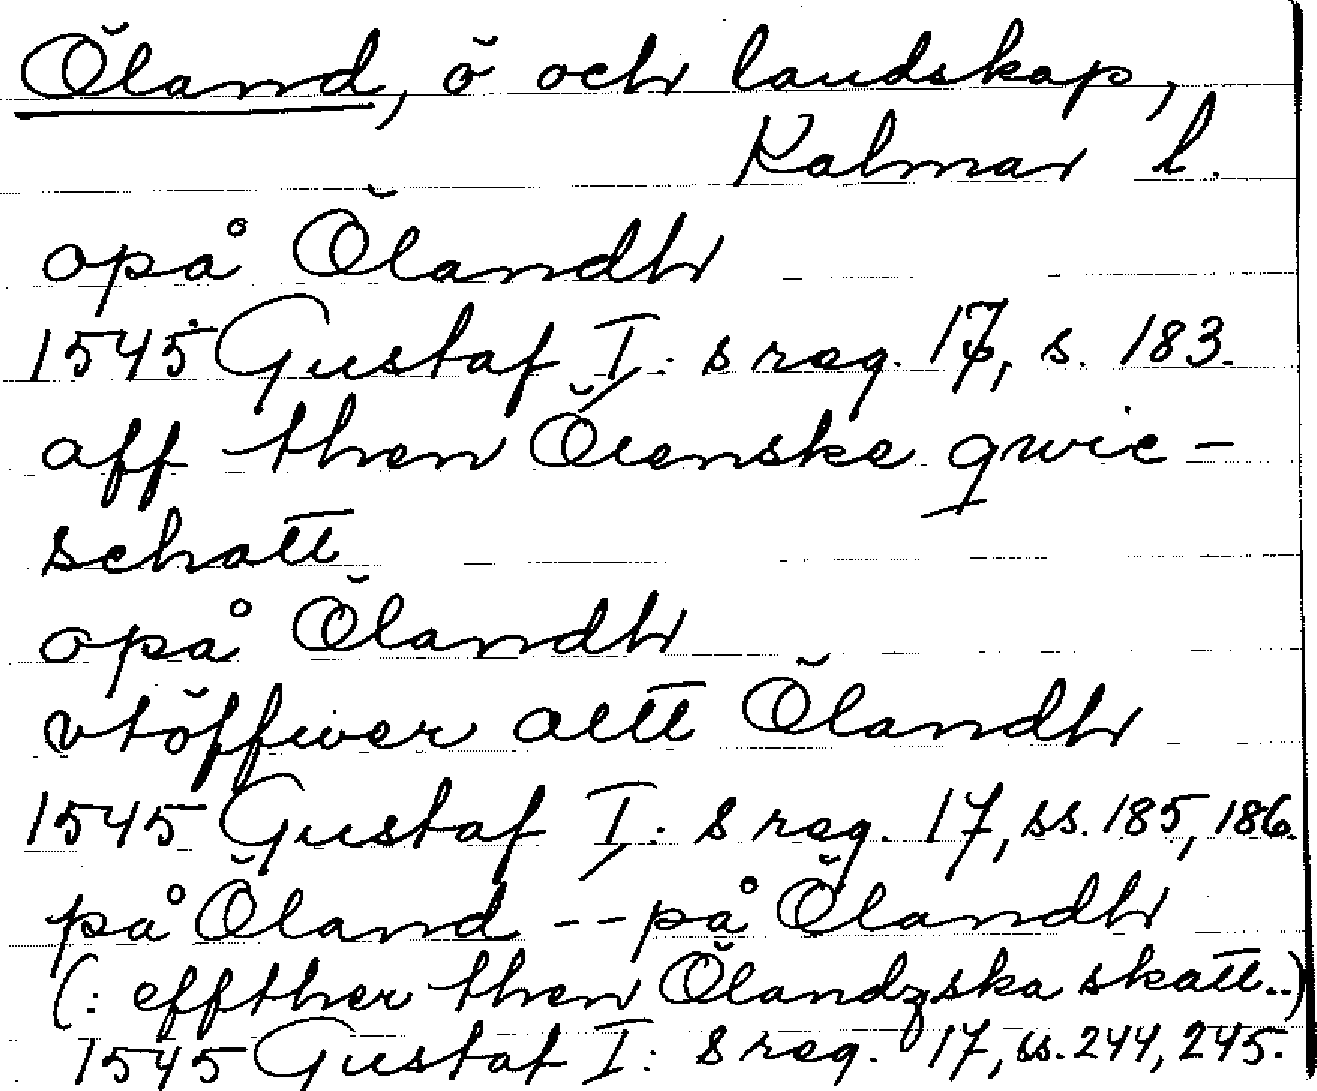 Öland, ö och landskap,
Kalmar l.
opå Ölandh
1545 Gustaf I:s reg. 17, s. 183.
aff then Ölenske qwic-
schatt
opå Ölandh
vtöffwer altt Ölandh
1545 Gustaf I:s reg. 17, ss. 185, 186.
på Öland -- på Ölandh
(: effther then Ölandzska skatt..)
1545 Gustaf I:s reg. 17, ss. 244, 245.